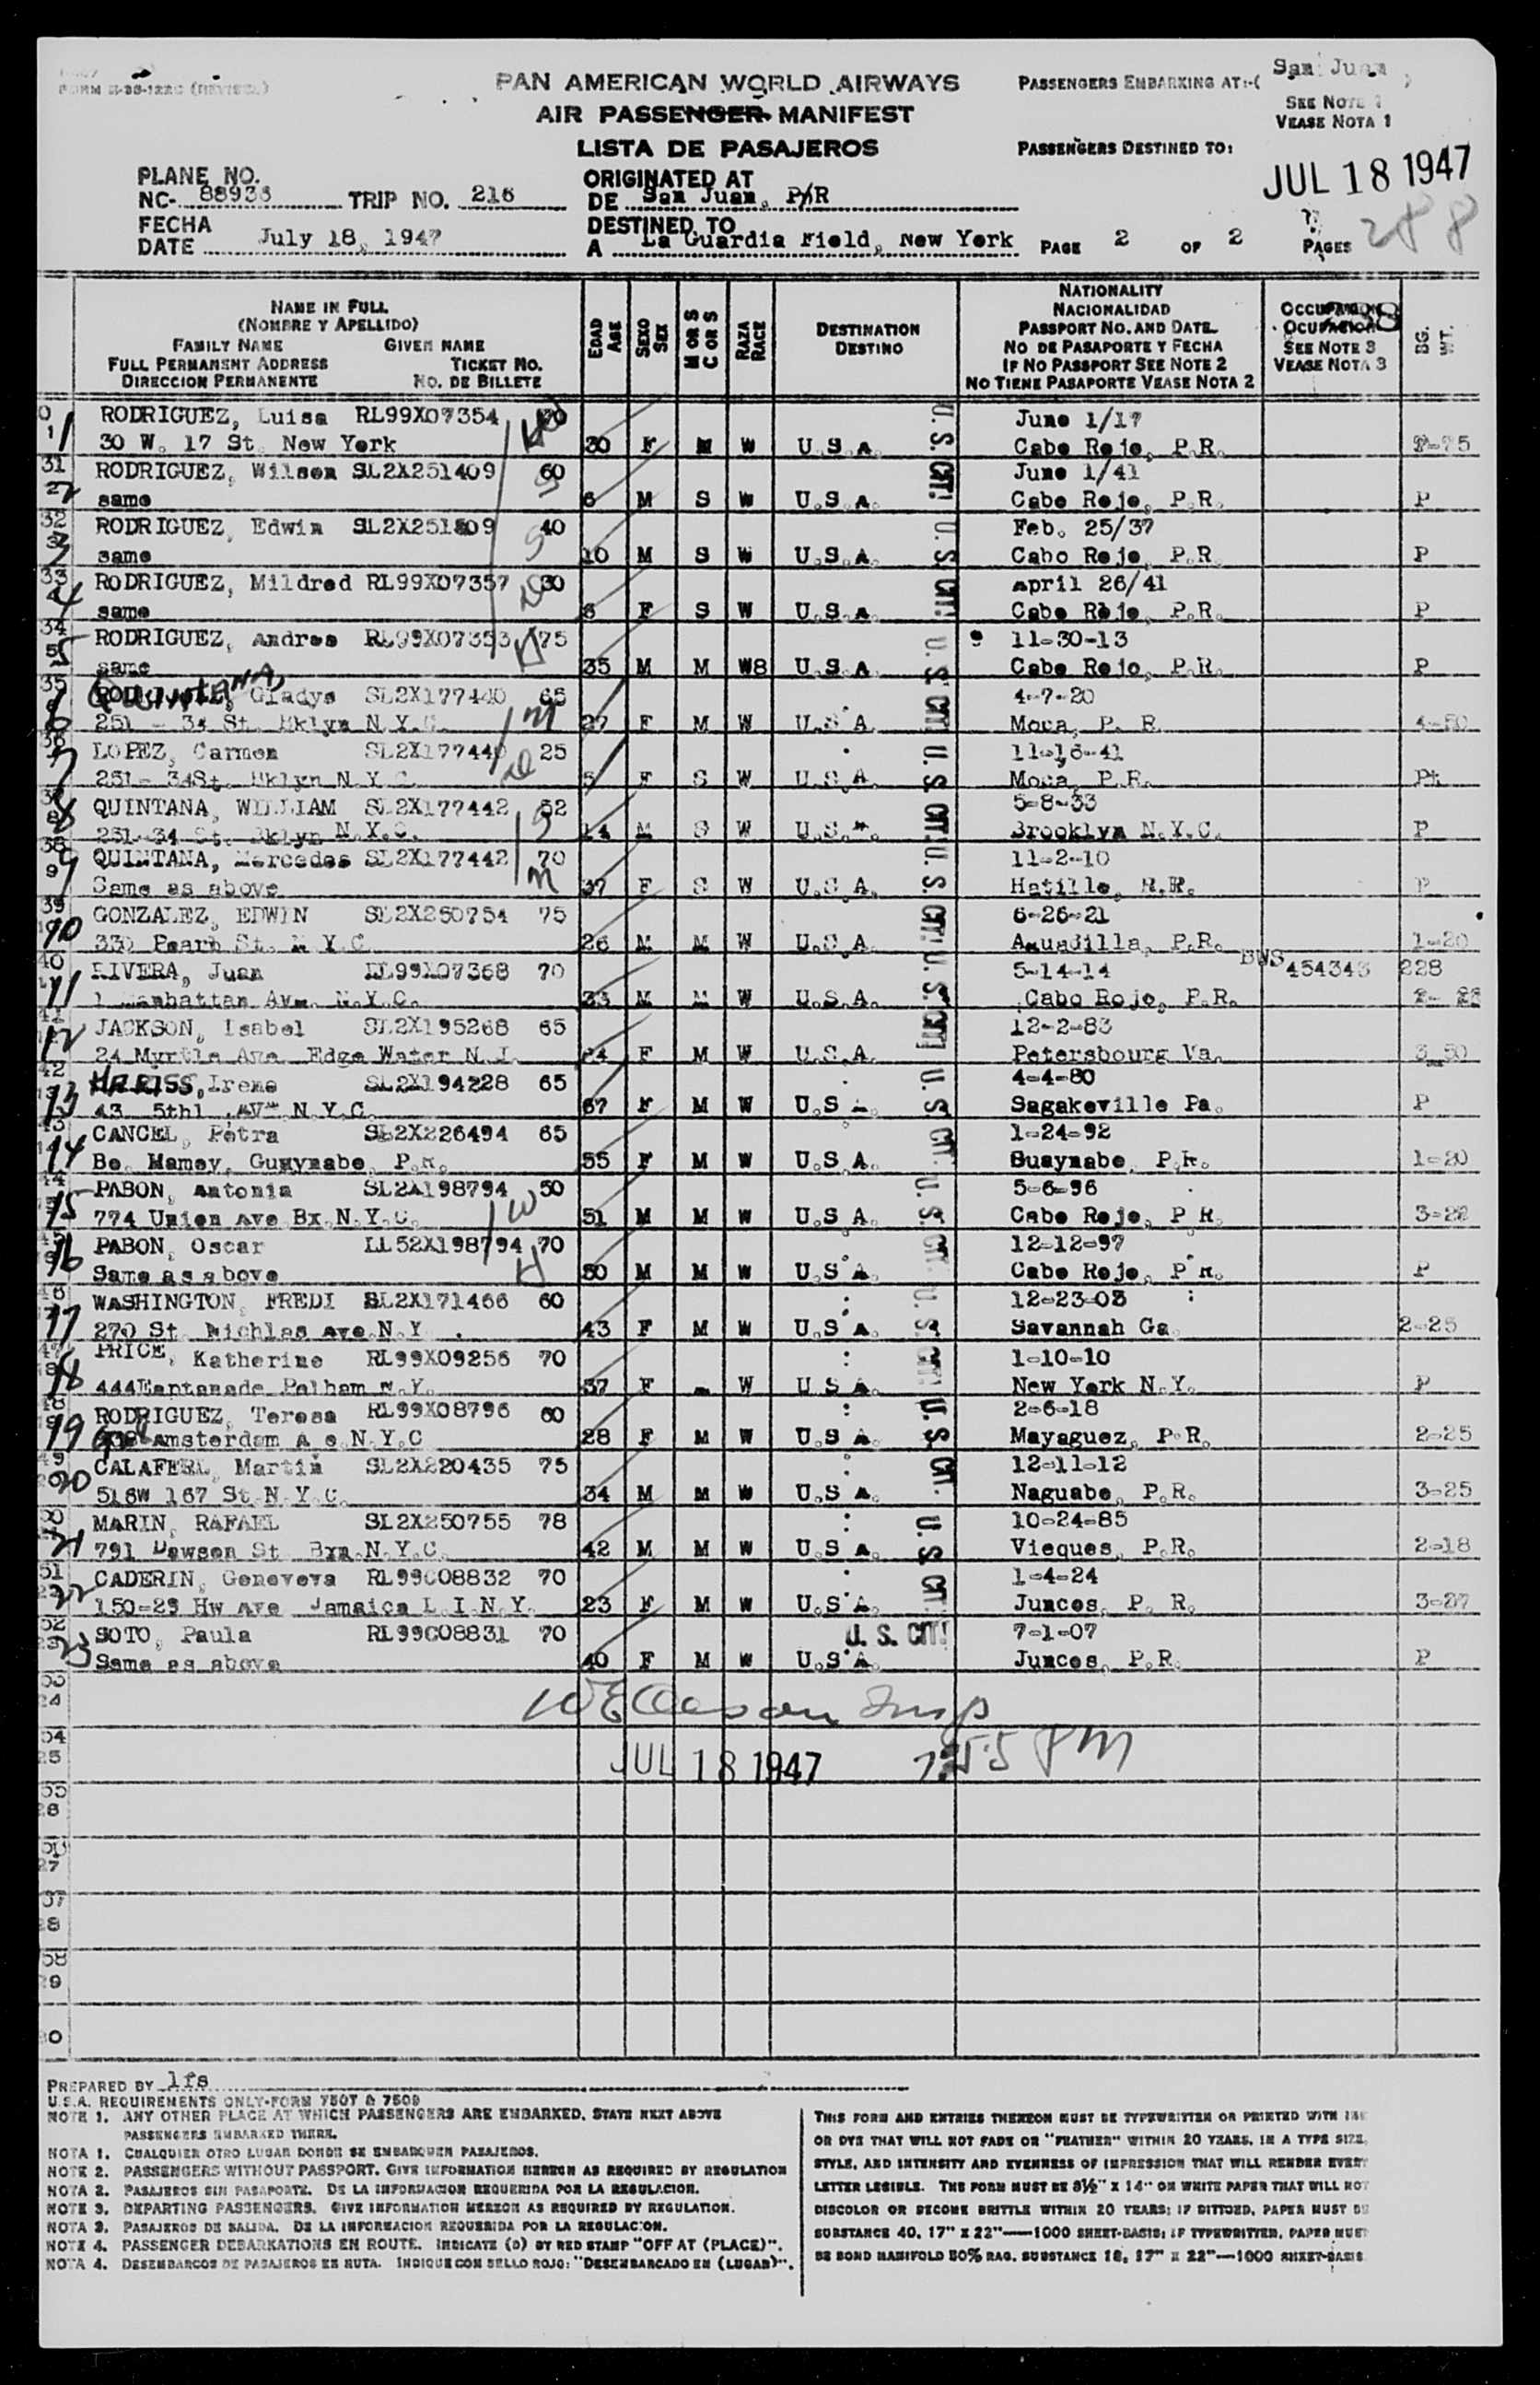 FORM H-38-122C (REVISED)
PAN AMERICAN WORLD AIRWAYS
AIR PASSENGER MANIFEST
LISTA DE PASAJEROS
PASSENGERS EMBARKING AT:-( San Juan )
SEE NOTE 1
VEASE NOTA 1
PASSENGERS DESTINED TO:
JUL 18 1947
288
PLANE NO.
NC- 88938 TRIP NO. 216
ORIGINATED AT
DE San Juan, P/R
FECHA
DATE July 18, 1947
DESTINED TO
A La Guardia Field, New York PAGE 2 OF 2 PAGES
NAME IN FULL
(NOMBRE Y APELLIDO)
FAMILY NAME GIVEN NAME
FULL PERMANENT ADDRESS TICKET NO.
DIRECCION PERMANENTE NO. DE BILLETE
EDAD AGE
SEXO SEX
M OR S C OR S
RAZA RACE
DESTINATION
DESTINO
NATIONALITY
NACIONALIDAD
PASSPORT NO. AND DATE
NO DE PASAPORTE Y FECHA
IF NO PASSPORT SEE NOTE 2
NO TIENE PASAPORTE VEASE NOTA 2
OCCUPATION
OCUPACION
SEE NOTE 3
VEASE NOTA 3
288
BG. WT.
RODRIGUEZ, Luisa RL99X07354 June 1/17
1 30 W. 17 St. New York 30 F M W U.S.A. Cabo Rojo, P.R.
31 RODRIGUEZ, Wilson SL2X251409 60 June 1/41
2 same 6 M S W U.S.A. Cabo Rojo, P.R. P
32 RODRIGUEZ, Edwin 40 Feb. 25/37
3 same 10 M S W U.S.A. Cabo Rojo, P.R. P
33 RODRIGUEZ, Mildred RL99X07357 30 April 26/41
4 same 6 F S W U.S.A. Cabo Rojo, P.R. P
34 RODRIGUEZ, Andres RL99X07353 75 11-30-13
5 same 35 M M W8 U.S.A Cabo Rojo, P.R. P
35 QUINTANA, Gladys SL2X177440 65 4-7-20
6 251 - 34 St. Bklyn N.Y.C. 27 F M W U.S.A Moca, P. R. 4-50
36 LOPEZ, Carmen SL2X177440 25 11-16-41
7 251- 34St. Bklyn N.Y.C. 5 F S W U.S.A. Moca, P.R.
QUINTANA, WILLIAM SL2X177442 52 5-8-33
8 251-34 St. Bklyn N.Y.C. 14 M S W Brooklyn N.Y.C. P
38 QUINTANA, Mercedes SL2X177442 70 11-2-10
9 Same as above 37 F S W U.S.A. P
39 GONZALEZ, EDWIN SL2X250754 75 6-26-21
10 330 Pearl St. N.Y.C 26 M M W U.S.A Aguadilla, P.R. 1-20
40 RIVERA, Juan 70 5-14-14 BWS 454343 228
11 1 Manhattan Ave. N.Y.C. 33 M M W U.S.A. Cabo Rojo, P.R.
41 JACKSON, Isabel SL2X195268 65 12-2-83
12 24 Myrtle Ave Edge Water N.J. F M W U.S.A. Petersbourg Va. 3-50
42 HARISS, Irene SL2X194228 65 4-4-80
13 43 5th1 AV N.Y.C. 67 F M W U.S.A. Sagakeville Pa. P
43 CANCEL, Petra SL2X226494 65 1-24-92
14 Bo. Mamey, Guaynabo, P.R. 55 F M W U.S.A. Guaynabo, P.R. 1-20
44 PABON, Antonia SL2X198794 50 5-6-96
15 774 Union Ave Bx.N.Y.C. 51 M M W U.S A. Cabo Rojo, P R. 3-22
45 PABON, Oscar LL52X198794 70 12-12-97
16 Same as above 50 M M W U.S A. Cabo Rojo, P R. P
46 WASHINGTON, FREDI SL2X171466 60
17 270 St. Nichlas Ave.N.Y. 43 F M W U.S A. Savannah Ga. 2-25
47 PRICE, Katherine RL99X09256 70 1-10-10
18 444Esptanade Pelham N.Y. 37 F W U S A. New York N.Y. P
48 RODRIGUEZ, Teresa RL99X08796 60 2-6-18
19 Amsterdam A e.N.Y.C 28 F M W U.S A. Mayaguez, P.R. 2-25
49 Martin SL2X220435 75 12-11-12
20 516W 167 St N.Y.C. 34 M M W U.S A. Naguabo, P.R. 3-25
50 MARIN, RAFAEL SL2X250755 78 10-24-85
21 791 Dawson St Brx.N.Y.C. 42 M M W U.S A. Vieques, P.R. 2-18
51 CADERIN, Genoveva RL99C08832 70 1-4-24
22 150-29 Hw Ave Jamaica L.I.N.Y. 23 F M W U.S A. Juncos, P. R. 3-27
52 SOTO, Paula RL99C08831 70 U. S. CIT. 7-1-07
23 Same as above 40 F M W U.S A. Juncos, P.R. P
24
54
25
JUL 18 1947 7:55 PM
55
26
27
57
28
58
29
30
PREPARED BY lfs
U.S.A. REQUIREMENTS ONLY-FORM 7507 & 7509
NOTE 1. ANY OTHER PLACE AT WHICH PASSENGERS ARE EMBARKED, STATE NEXT ABOVE
PASSENGERS EMBARKED THERE.
NOTA 1. CUALQUIER OTRO LUGAR DONDE SE EMBARQUEN PASAJEROS.
NOTE 2. PASSENGERS WITHOUT PASSPORT. GIVE INFORMATION HEREON AS REQUIRED BY REGULATION
NOTA 2. PASAJEROS SIN PASAPORTE. DE LA INFORMACION REQUERIDA POR LA REGULACION.
NOTE 3. DEPARTING PASSENGERS. GIVE INFORMATION HEREON AS REQUIRED BY REGULATION.
NOTA 3. PASAJEROS DE SALIDA. DE LA INFORMACION REQUERIDA POR LA REGULACION.
NOTE 4. PASSENGER DEBARKATIONS EN ROUTE. INDICATE (D) BY RED STAMP "OFF AT (PLACE)".
NOTA 4. DESEMBARCOS DE PASAJEROS EN RUTA. INDIQUE CON SELLO ROJO: "DESEMBARCADO EN (LUGAR)".
THIS FORM AND ENTRIES THEREON MUST BE TYPEWRITTEN OR PRINTED WITH INK
OR DYE THAT WILL NOT FADE OR "FEATHER" WITHIN 20 YEARS, IN A TYPE SIZE,
STYLE, AND INTENSITY AND EVENNESS OF IMPRESSION THAT WILL RENDER EVERY
LETTER LEGIBLE. THE FORM MUST BE 8½" X 14" ON WHITE PAPER THAT WILL NOT
DISCOLOR OR BECOME BRITTLE WITHIN 20 YEARS; IF DITTOED, PAPER MUST BE
SUBSTANCE 40, 17" X 22"—1000 SHEET-BASIS; IF TYPEWRITTEN, PAPER MUST
BE BOND MANIFOLD 50% RAG. SUBSTANCE 18, 17" X 22"—1000 SHEET-BASIS